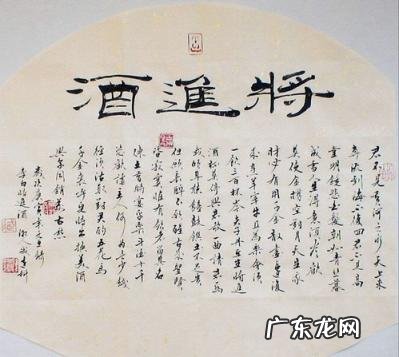 將進酒
君不見黃河之水天上來
奔流到海不復回君不見高
堂明鏡悲白髮朝如青絲暮
成雪人生得意須盡歡
莫使金樽空對月天生我
材必有用千金散盡還復
來烹羊宰牛且為樂會須
一飲三百杯岑夫子丹丘生將進
酒杯莫停與君歌一曲請君為
我傾耳聽鐘鼓饌玉不足貴
但願長醉不願醒古來聖賢
皆寂寞惟有飲者留其名
陳王昔時宴平樂斗酒十千
恣歡謔主人何為言少錢
徑須沽取對君酌五花馬
千金裘呼兒將出換美酒
與爾同銷萬古愁
歲次庚寅年
李白將進酒
广东龙网